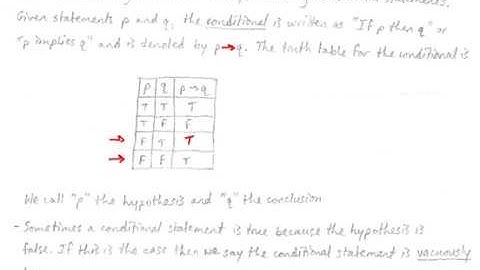 statements.
Given statements p and q, the conditional is written as "If p then q" or
"p implies q" and is denoted by p→q. The truth table for the conditional is
p q p→q
T T T
T F F
→ F T T
→ F F T
We call "p" the hypothesis and "q" the conclusion
- Sometimes a conditional statement is true because the hypothesis is
false. If this is the case then we say the conditional statement is vacuously